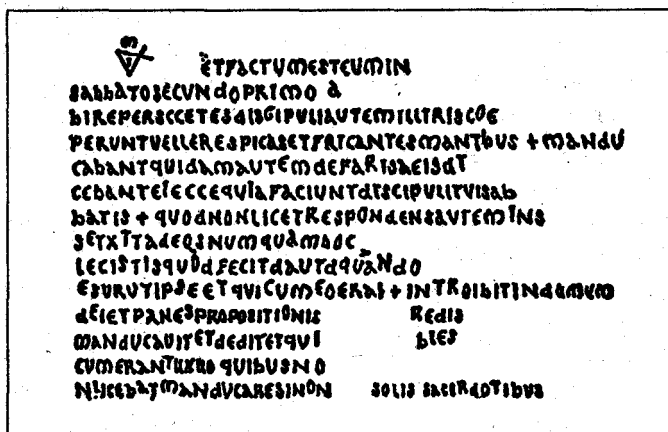 ETFACTUMESTCUMIN
SABBATOSECUNdOPRIMO A
bIREPERSCCETESdISCIPULIAUTEMILLIRISCOE
PERUNTVELLERESPICASETFRICANTESMANIbUS + MANdU
CAbANTQUIdAMAUTEMdEFARISAEISdI
CEbANTEIECCEQUIAFACIUNTdISCIPULITUISAb
bATIS + QUOdNONLICETRESPONdENSAUTEMINS
LECISTISQUOdFECITdAUIdQUANdO
ESURUTIPSEETQUICUMEOERAS + INTROIbITINdOMUM
dEIETPANESPROPOSITIONIS REdIS
MANdUCAUITETdEdITETQUI bLES
QUIbUSNO
NLICEbATMANdUCARESINON SOLIS SACERdOTIbUS